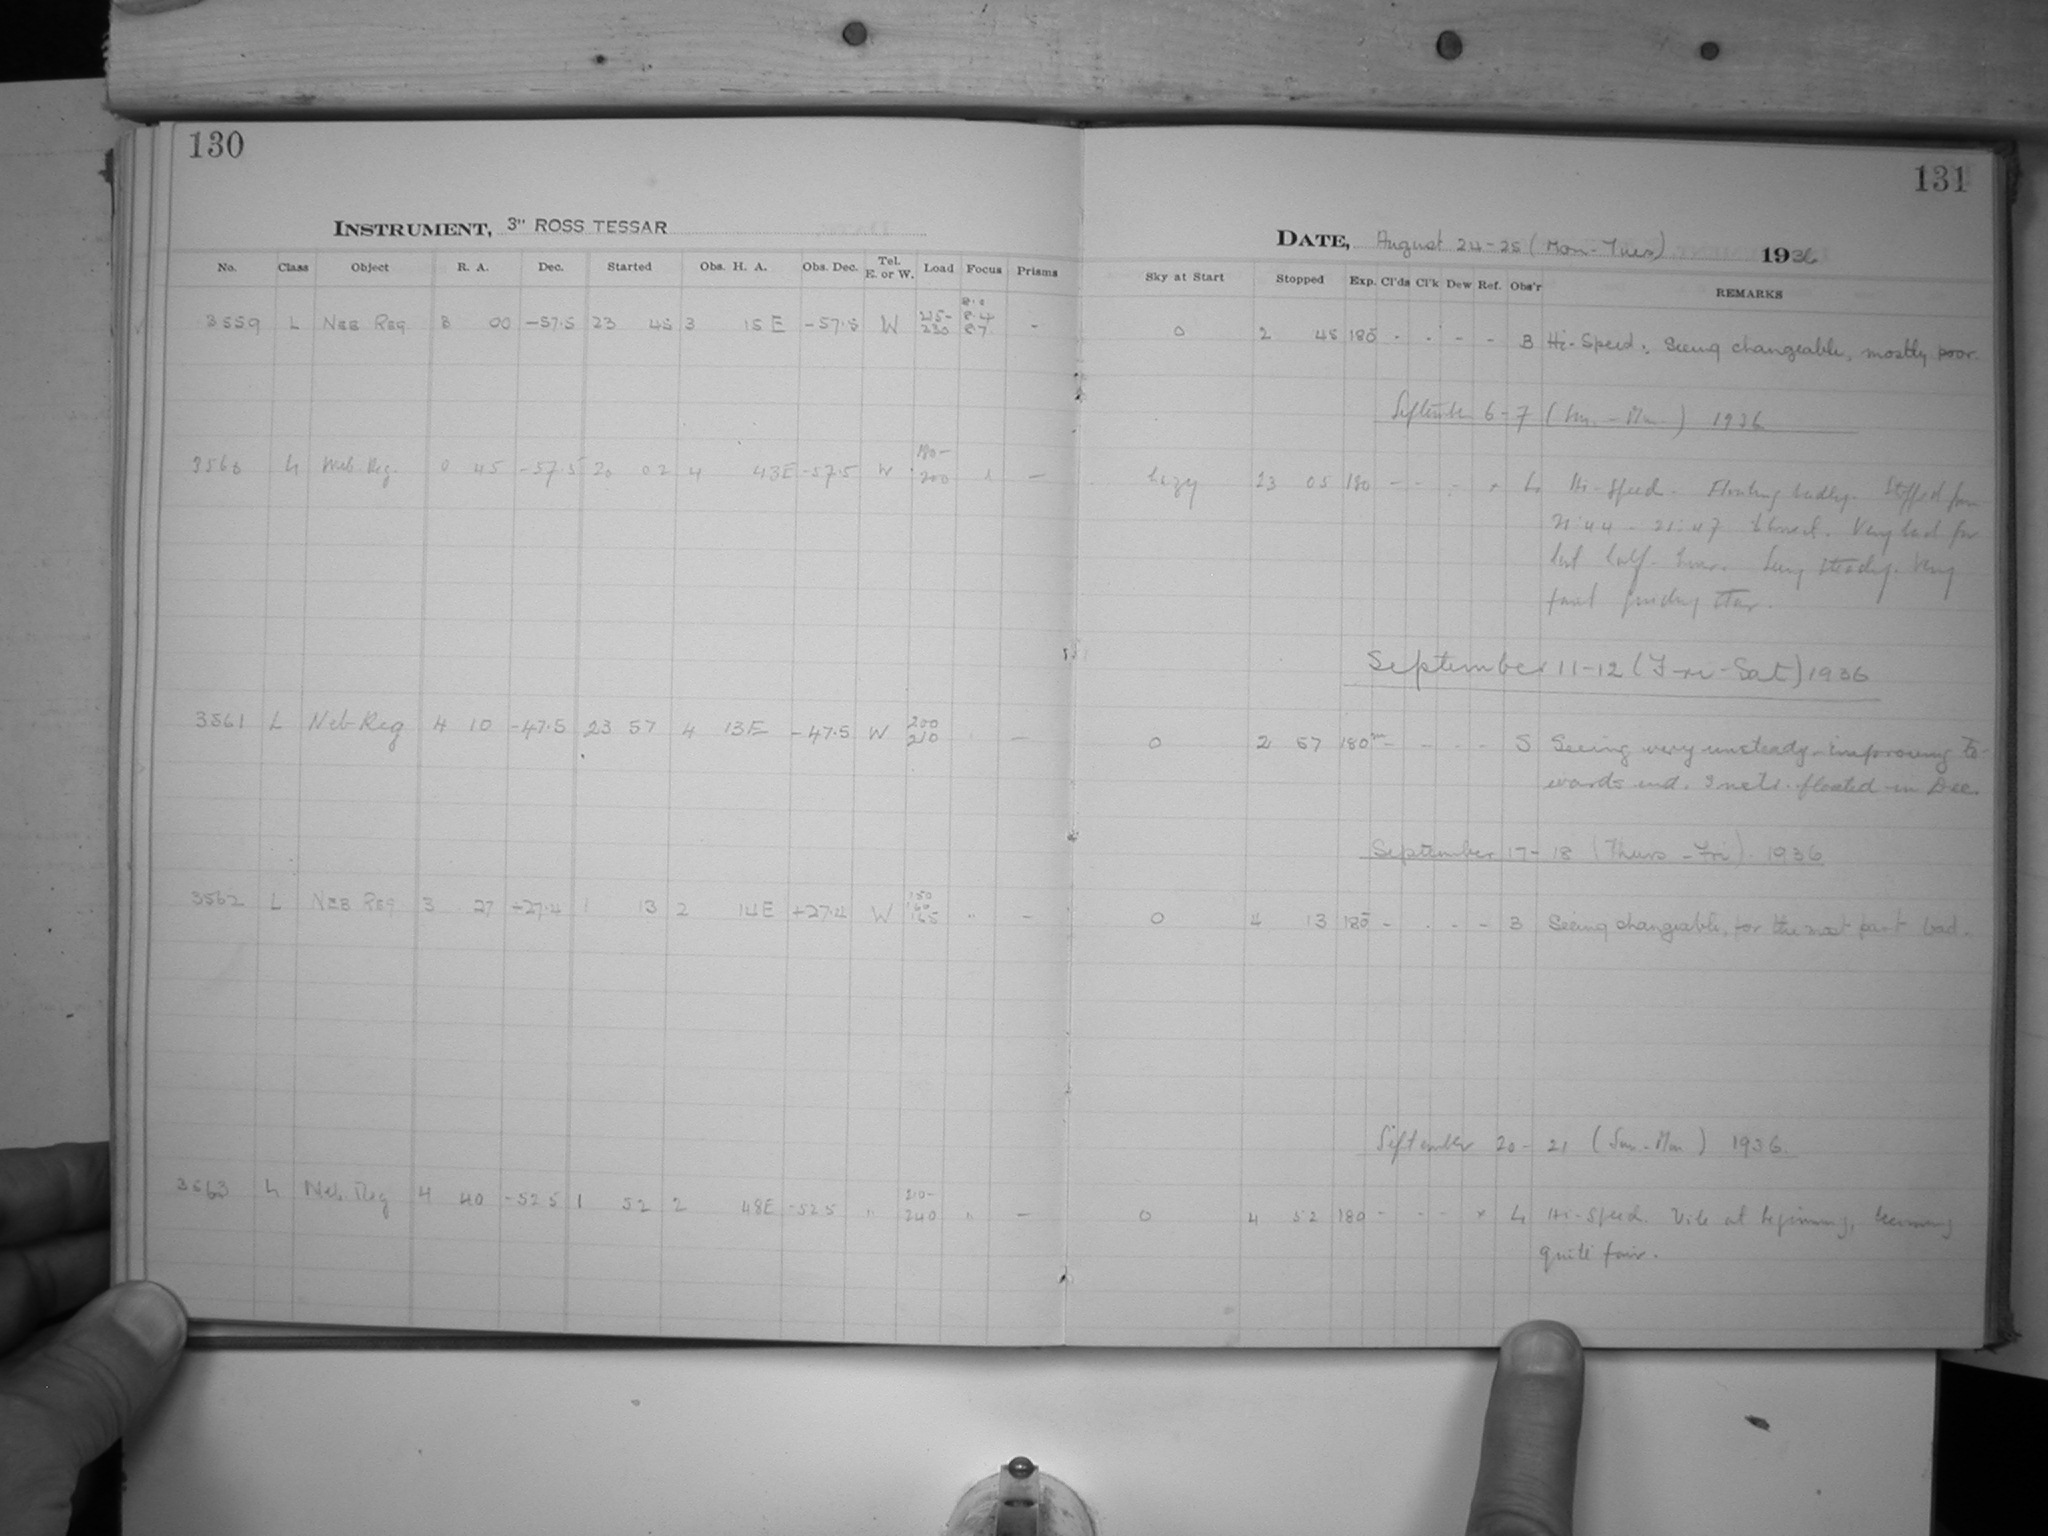 130
131
INSTRUMENT, 3" ROSS TESSAR
DATE, August 24-25 (Mon-Tues) 1936
No. Class Object R. A. Dec. Started Obs. H. A. Obs. Dec. Tel. E. or W. Load Focus Prisms
Sky at Start Stopped Exp. Cl'ds Cl'k Dew Ref. Obs'r REMARKS
3559 L NEB REG 3 00 -57.5 23 45 3 15 E -57.5 W 230 8.4 8.7 -
0 2 45 180 - - - - B Hi-Speed; Seeing changeable, mostly poor.
September 6-7 (Sun. - Mon.) 1936
3560 L Neb Reg. 0 45 -57.5 20 02 4 43E -57.5 W 180- 200 -
hazy 23 05 180 - - - L Hi-Speed. Floating badly. Stopped from
21:44 - 21:47 Very bad for
last half-hour. Seeing steady. Very
faint guiding star.
September 11-12 (Fri-Sat) 1936
3561 L Neb Reg 4 10 -47.5 23 57 4 13E -47.5 W 200 210 -
0 2 57 180m - - - - S Seeing very unsteady-improving to-
wards end. floated in Dec.
September 17-18 (Thurs-Fri). 1936
3562 L NEB REG 3 27 +27.4 1 13 2 14E +27.4 W 150 160 165 " -
0 4 13 180 - - - - B Seeing changeable, for the most part bad.
September 20-21 (Sun-Mon) 1936.
3563 L Neb. Reg 4 40 -52 5 1 52 2 48E -52 5 " 210- 240 " -
0 4 52 180 - - - L Hi-Speed. Vile at beginning, becoming
quite fair.